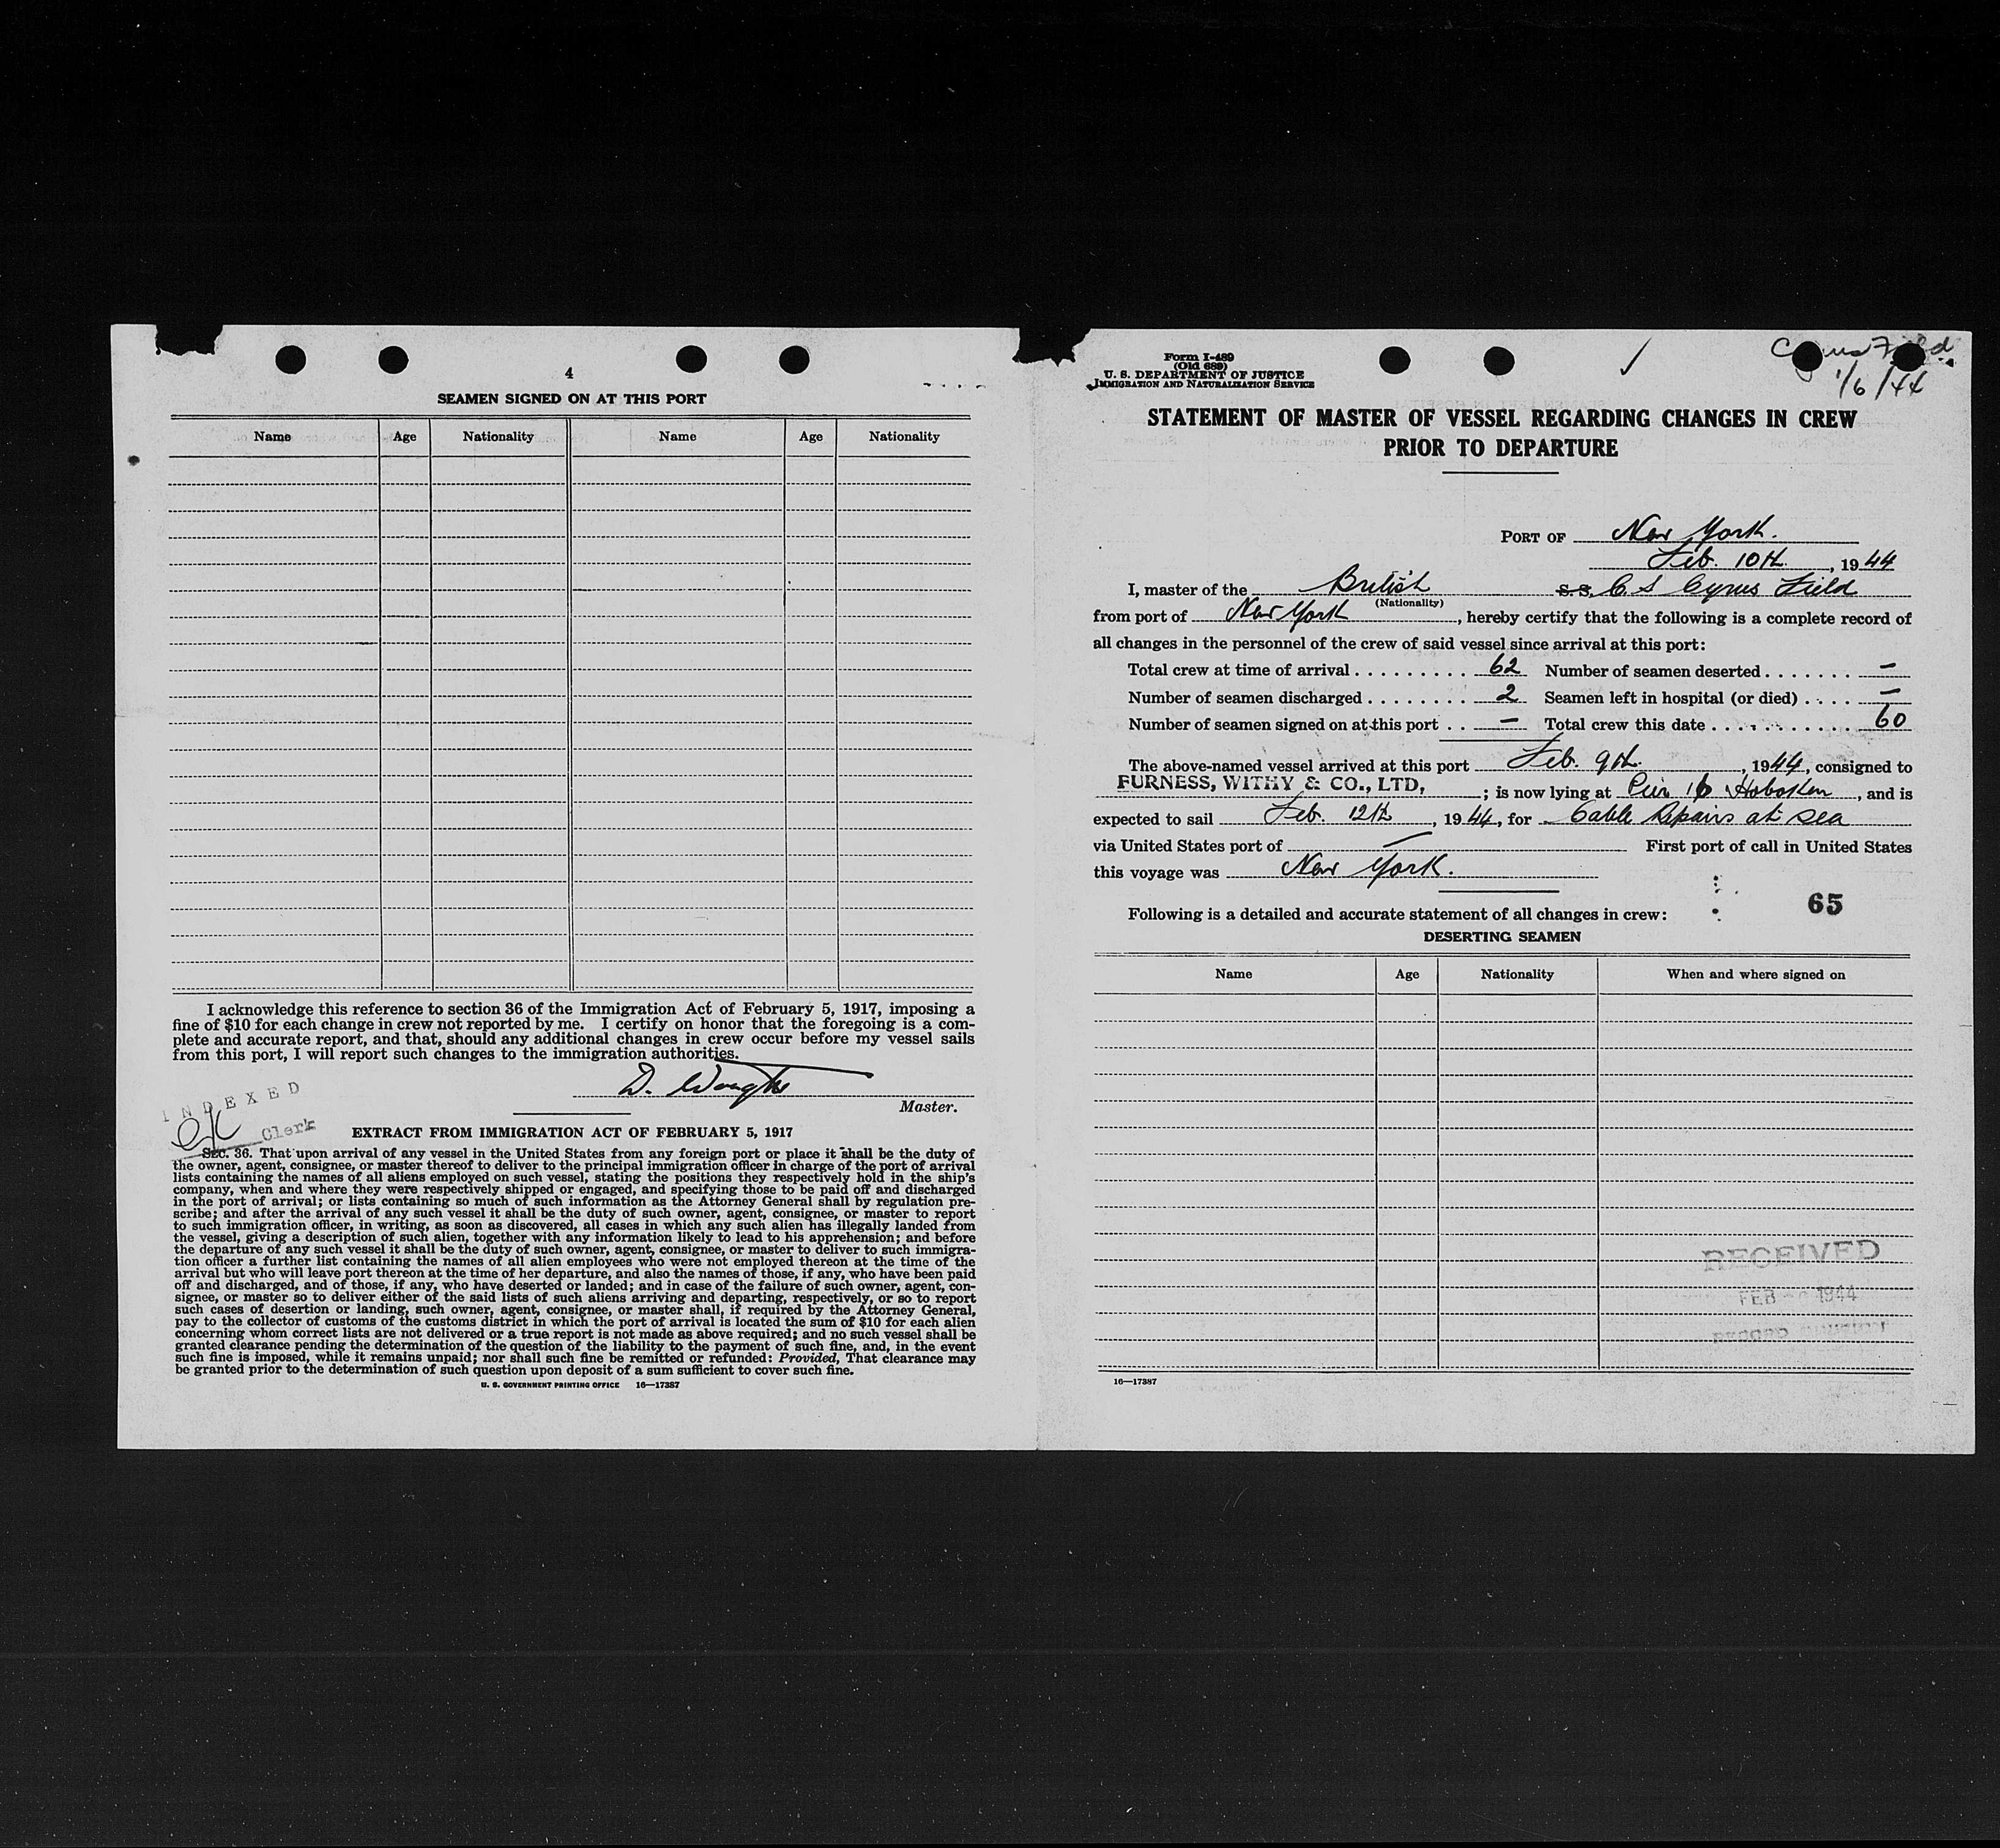 4
SEAMEN SIGNED ON AT THIS PORT
Name Age Nationality Name Age Nationality
I acknowledge this reference to section 36 of the Immigration Act of February 5, 1917, imposing a
fine of $10 for each change in crew not reported by me. I certify on honor that the foregoing is a com-
plete and accurate report, and that, should any additional changes in crew occur before my vessel sails
from this port, I will report such changes to the immigration authorities.
D.
Master.
INDEXED
Clerk
EXTRACT FROM IMMIGRATION ACT OF FEBRUARY 5, 1917
SEC. 36. That upon arrival of any vessel in the United States from any foreign port or place it shall be the duty of
the owner, agent, consignee, or master thereof to deliver to the principal immigration officer in charge of the port of arrival
lists containing the names of all aliens employed on such vessel, stating the positions they respectively hold in the ship's
company, when and where they were respectively shipped or engaged, and specifying those to be paid off and discharged
in the port of arrival; or lists containing so much of such information as the Attorney General shall by regulation pre-
scribe; and after the arrival of any such vessel it shall be the duty of such owner, agent, consignee, or master to report
to such immigration officer, in writing, as soon as discovered, all cases in which any such alien has illegally landed from
the vessel, giving a description of such alien, together with any information likely to lead to his apprehension; and before
the departure of any such vessel it shall be the duty of such owner, agent, consignee, or master to deliver to such immigra-
tion officer a further list containing the names of all alien employees who were not employed thereon at the time of the
arrival but who will leave port thereon at the time of her departure, and also the names of those, if any, who have been paid
off and discharged, and of those, if any, who have deserted or landed; and in case of the failure of such owner, agent, con-
signee, or master so to deliver either of the said lists of such aliens arriving and departing, respectively, or so to report
such cases of desertion or landing, such owner, agent, consignee, or master shall, if required by the Attorney General,
pay to the collector of customs of the customs district in which the port of arrival is located the sum of $10 for each alien
concerning whom correct lists are not delivered or a true report is not made as above required; and no such vessel shall be
granted clearance pending the determination of the question of the liability to the payment of such fine, and, in the event
such fine is imposed, while it remains unpaid; nor shall such fine be remitted or refunded: Provided, That clearance may
be granted prior to the determination of such question upon deposit of a sum sufficient to cover such fine.
U. S. GOVERNMENT PRINTING OFFICE 16—17387
Form I-489
(Old 689)
U. S. DEPARTMENT OF JUSTICE
IMMIGRATION AND NATURALIZATION SERVICE
Cyrus Field
1/6/44
STATEMENT OF MASTER OF VESSEL REGARDING CHANGES IN CREW
PRIOR TO DEPARTURE
PORT OF New York.
Feb. 10th, 1944
I, master of the British S.S. C.S Cyrus Field
(Nationality)
from port of New York, hereby certify that the following is a complete record of
all changes in the personnel of the crew of said vessel since arrival at this port:
Total crew at time of arrival . . . . . . . . . . 62 Number of seamen deserted . . . . . . . —
Number of seamen discharged . . . . . . . . 2 Seamen left in hospital (or died) . . . . —
Number of seamen signed on at this port . . — Total crew this date . . . . . . . . . . . 60
The above-named vessel arrived at this port Feb. 9th, 1944, consigned to
FURNESS, WITHY & CO., LTD, ; is now lying at Pier 16 Hoboken, and is
expected to sail Feb. 12th, 1944, for Cable Repairs at sea
via United States port of — First port of call in United States
this voyage was New York.
65
Following is a detailed and accurate statement of all changes in crew:
DESERTING SEAMEN
Name Age Nationality When and where signed on
RECEIVED
FEB 1944
16—17387